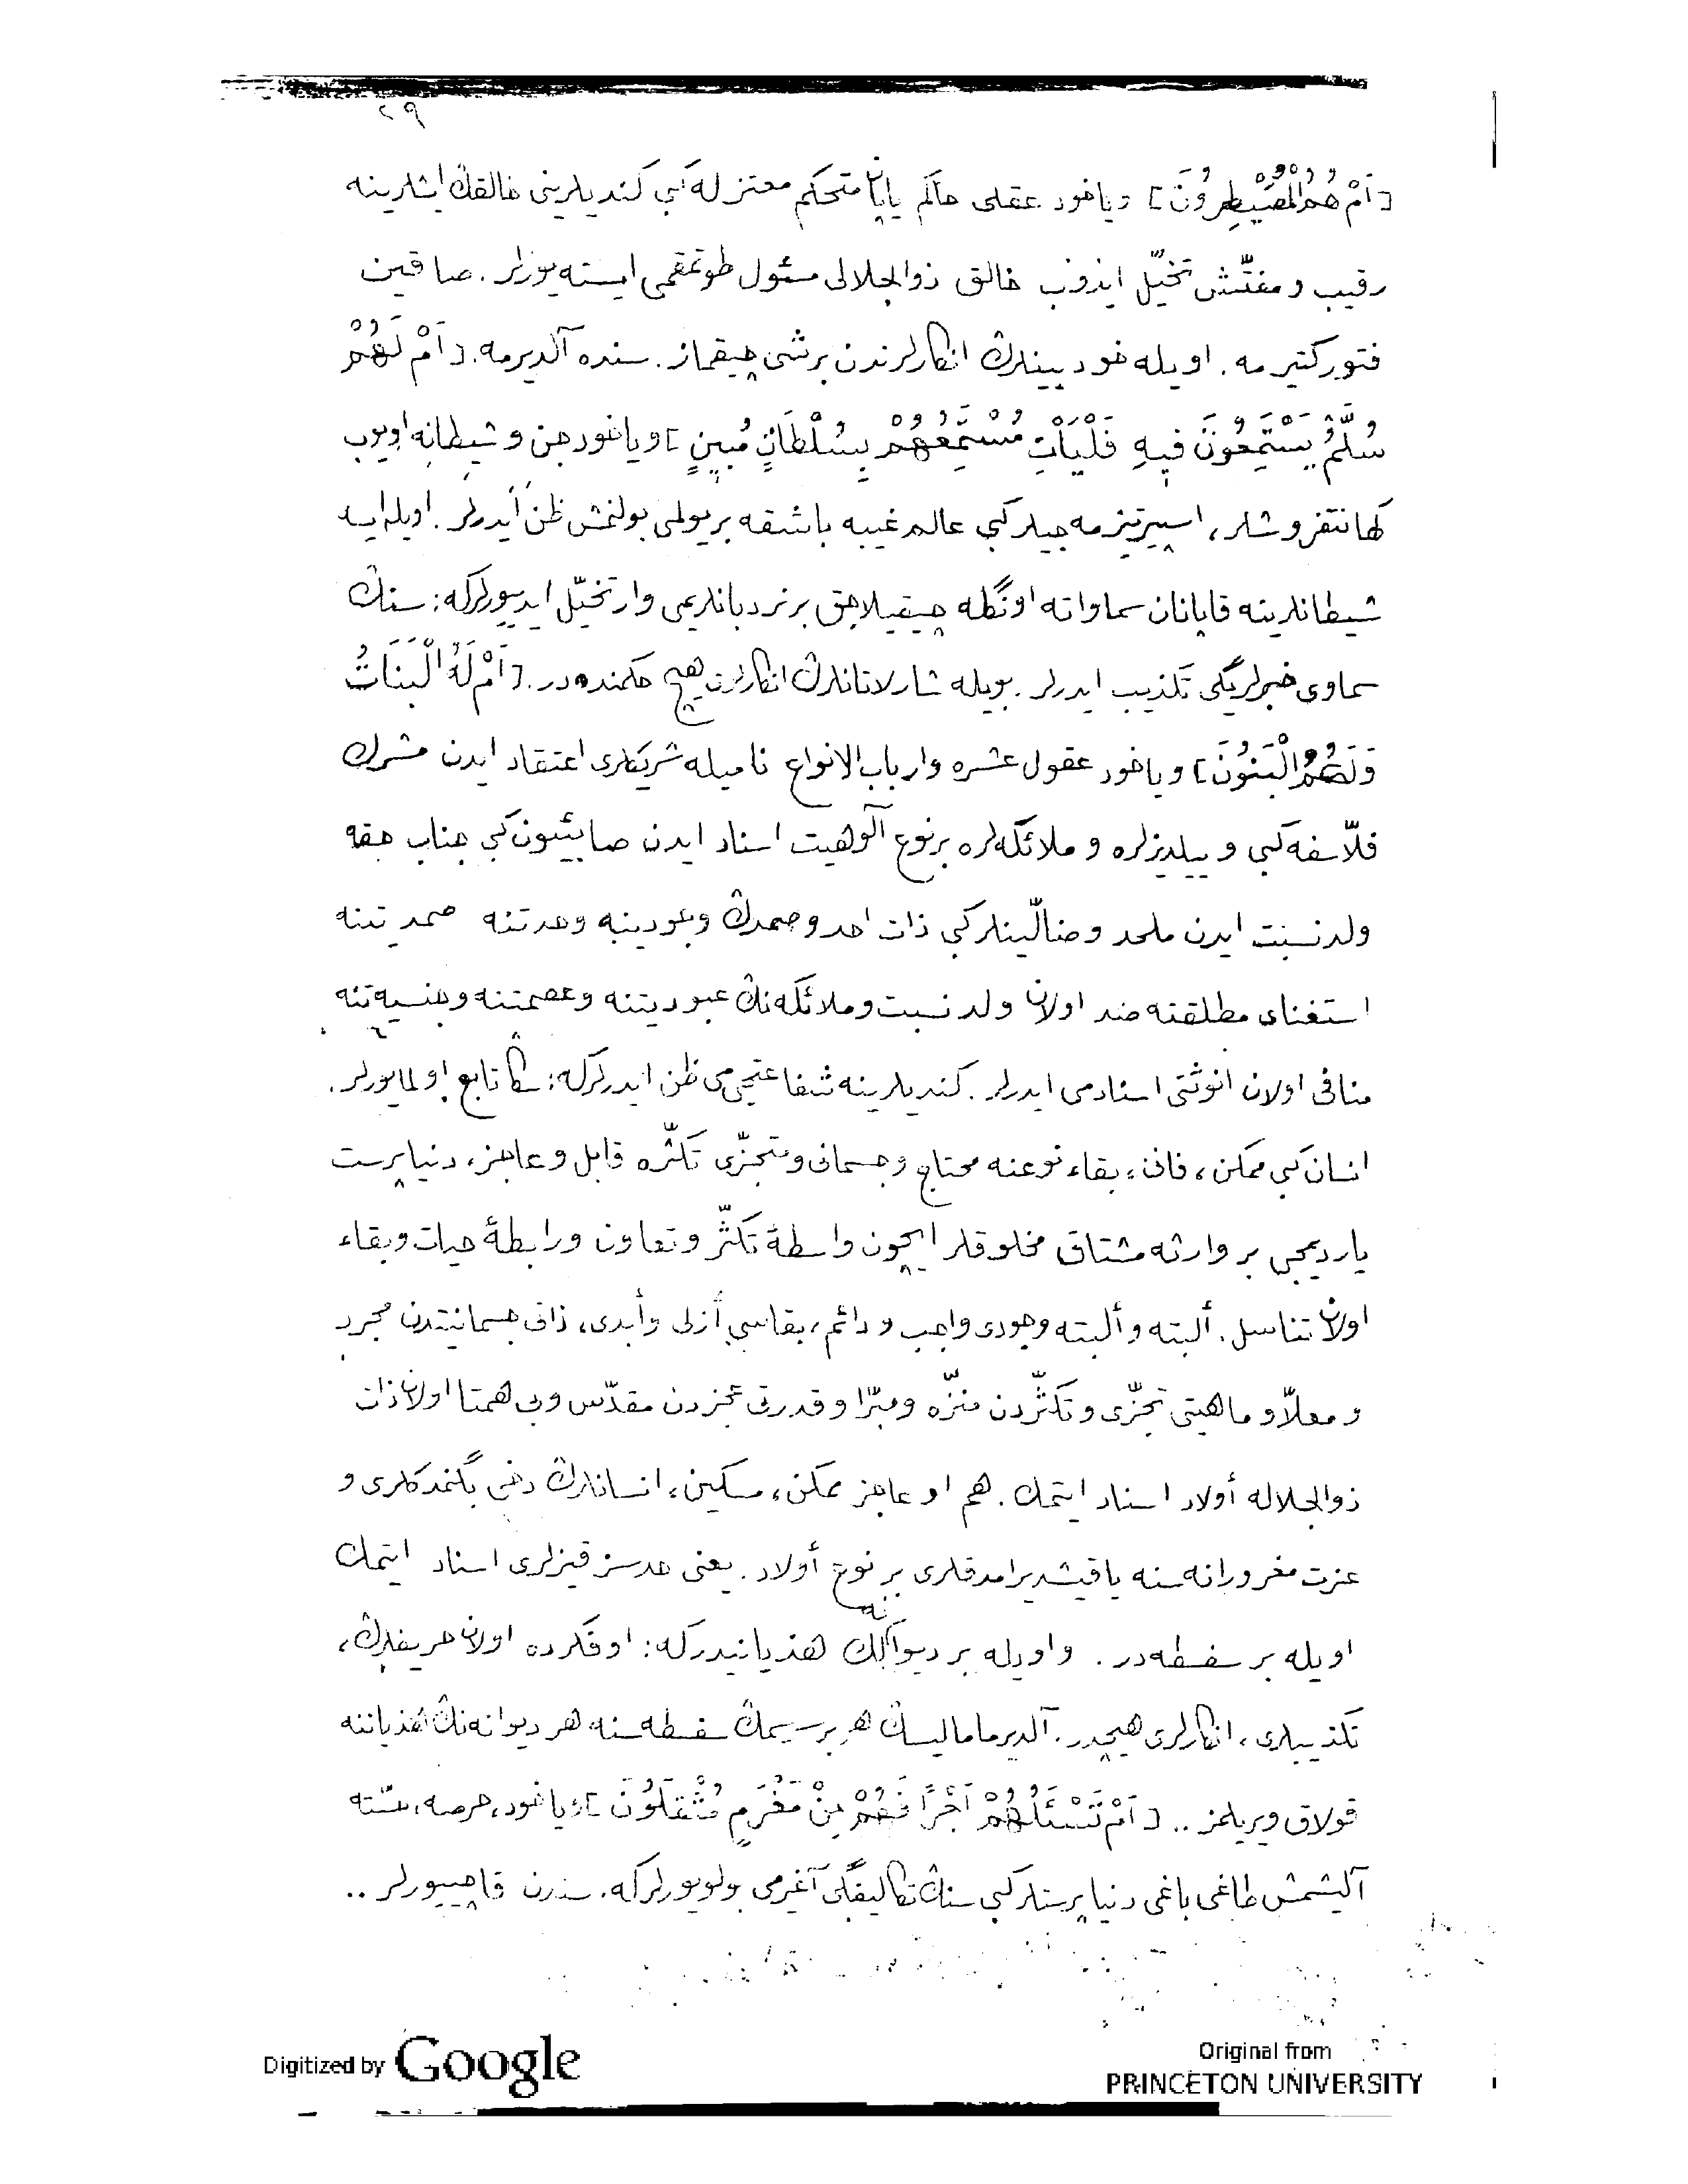 ٢٩
[اَمْ هُمُ الْمُصَيْطِرُونَ] وياخود عقلى حاكم ياپان متحكم معتزله كبى كنديلرينى خالقڭ ايشلرينه
رقيب و مفتّش تخيّل ايدوب خالق ذوالجلالى مسئول طوتمقمى ايسته يورلر. صاقين
فتور كتيرمه. اويله خودبينلرڭ انكارلرندن برشى چيقماز. سنده آلديرمه. [اَمْ لَهُمْ
سُلَّمٌ يَسْتَمِعُونَ فِيهِ فَلْيَأْتِ مُسْتَمِعُهُمْ بِسُلْطَانٍ مُبِينٍ] وياخود جن و شيطانه اويوب
كهانتفروشلر، اسپيرتيزمه جيلر كبى عالم غيبه باشقه بر يولمى بولنمش ظن ايدرلر. اويله ايسه
شيطانلرينه قاپانان سماواته اونڭله چيقيلاجق بر نردبانلريمى وار تخيّل ايدييورلركه: سنڭ
سماوى خبرلريڭى تكذيب ايدرلر. بويله شارلاتانلرڭ انكارلرى هيچ حكمنده در. [اَمْ لَهُ الْبَنَاتُ
وَلَكُمُ الْبَنُونَ] وياخود عقول عشره وارباب الانواع ناميله شريكلرى اعتقاد ايدن مشرك
فلاّسفه كبى و ييلديزلره و ملائكه لره بر نوع الوهيت اسناد ايدن صابئيون كبى جناب حقه
ولد نسبت ايدن ملحد و ضالّينلر كبى ذات احد وصمدڭ وجودينه وحدتنه صمديتنه
استغناى مطلقنه ضد اولان ولد نسبت و ملائكه نڭ عبوديتنه وعصمتنه وجنسيه تنه
منافى اولان انوثتى اسنادمى ايدرلر. كنديلرينه شفاعتجى مى ظن ايدرلركه: سڭا تابع اولمايورلر.
انسان كبى ممكن، فانى، بقاء نوعنه محتاج وجسمانى ومتجزّى تكثّره قابل وعاجز، دنياپرست
يارديمجى بر وارثه مشتاق مخلوقلر ايچون واسطۀ تكثّر و تعاون ورابطۀ حيات وبقاء
اولان تناسل. ألبته وألبته وجودى واجب و دائم، بقاسى أزلى وأبدى، ذاتى جسمانيتدن مجرد
و معلاّ و ماهيتى تجزّى و تكثّردن منزّه ومبرّا و قدرتى عجزدن مقدّس وبى همتا اولان ذات
ذوالجلاله أولاد اسناد ايتمك. هم او عاجز ممكن، مسكين، انسانلرڭ دخى بگنمدكلرى و
عزت مغرورانه سنه ياقيشديرامدقلرى بر نوع أولاد. يعنى حدسز قيزلرى اسناد ايتمك
اويله بر سفسطه در. واويله بر ديوانه لك هذيانيدركه: او فكرده اولان حريفلرڭ،
تكذيبلرى، انكارلرى هيچدر. آلديرماماليسڭ هر بر سرسمڭ سفسطه سنه هر ديوانه نڭ هذياننه
قولاق ويريلمز.. [اَمْ تَسْئَلُهُمْ اَجْرًا فَهُمْ مِنْ مَغْرَمٍ مُثْقَلُونَ] وياخود، حرصه، خسّته
آليشمش طاغى باغى دنياپرستلر كبى سنڭ تكاليفڭى آغيرمى بولويورلركه. سندن قاچييورلر..
Digitized by Google
Original from
PRINCETON UNIVERSITY